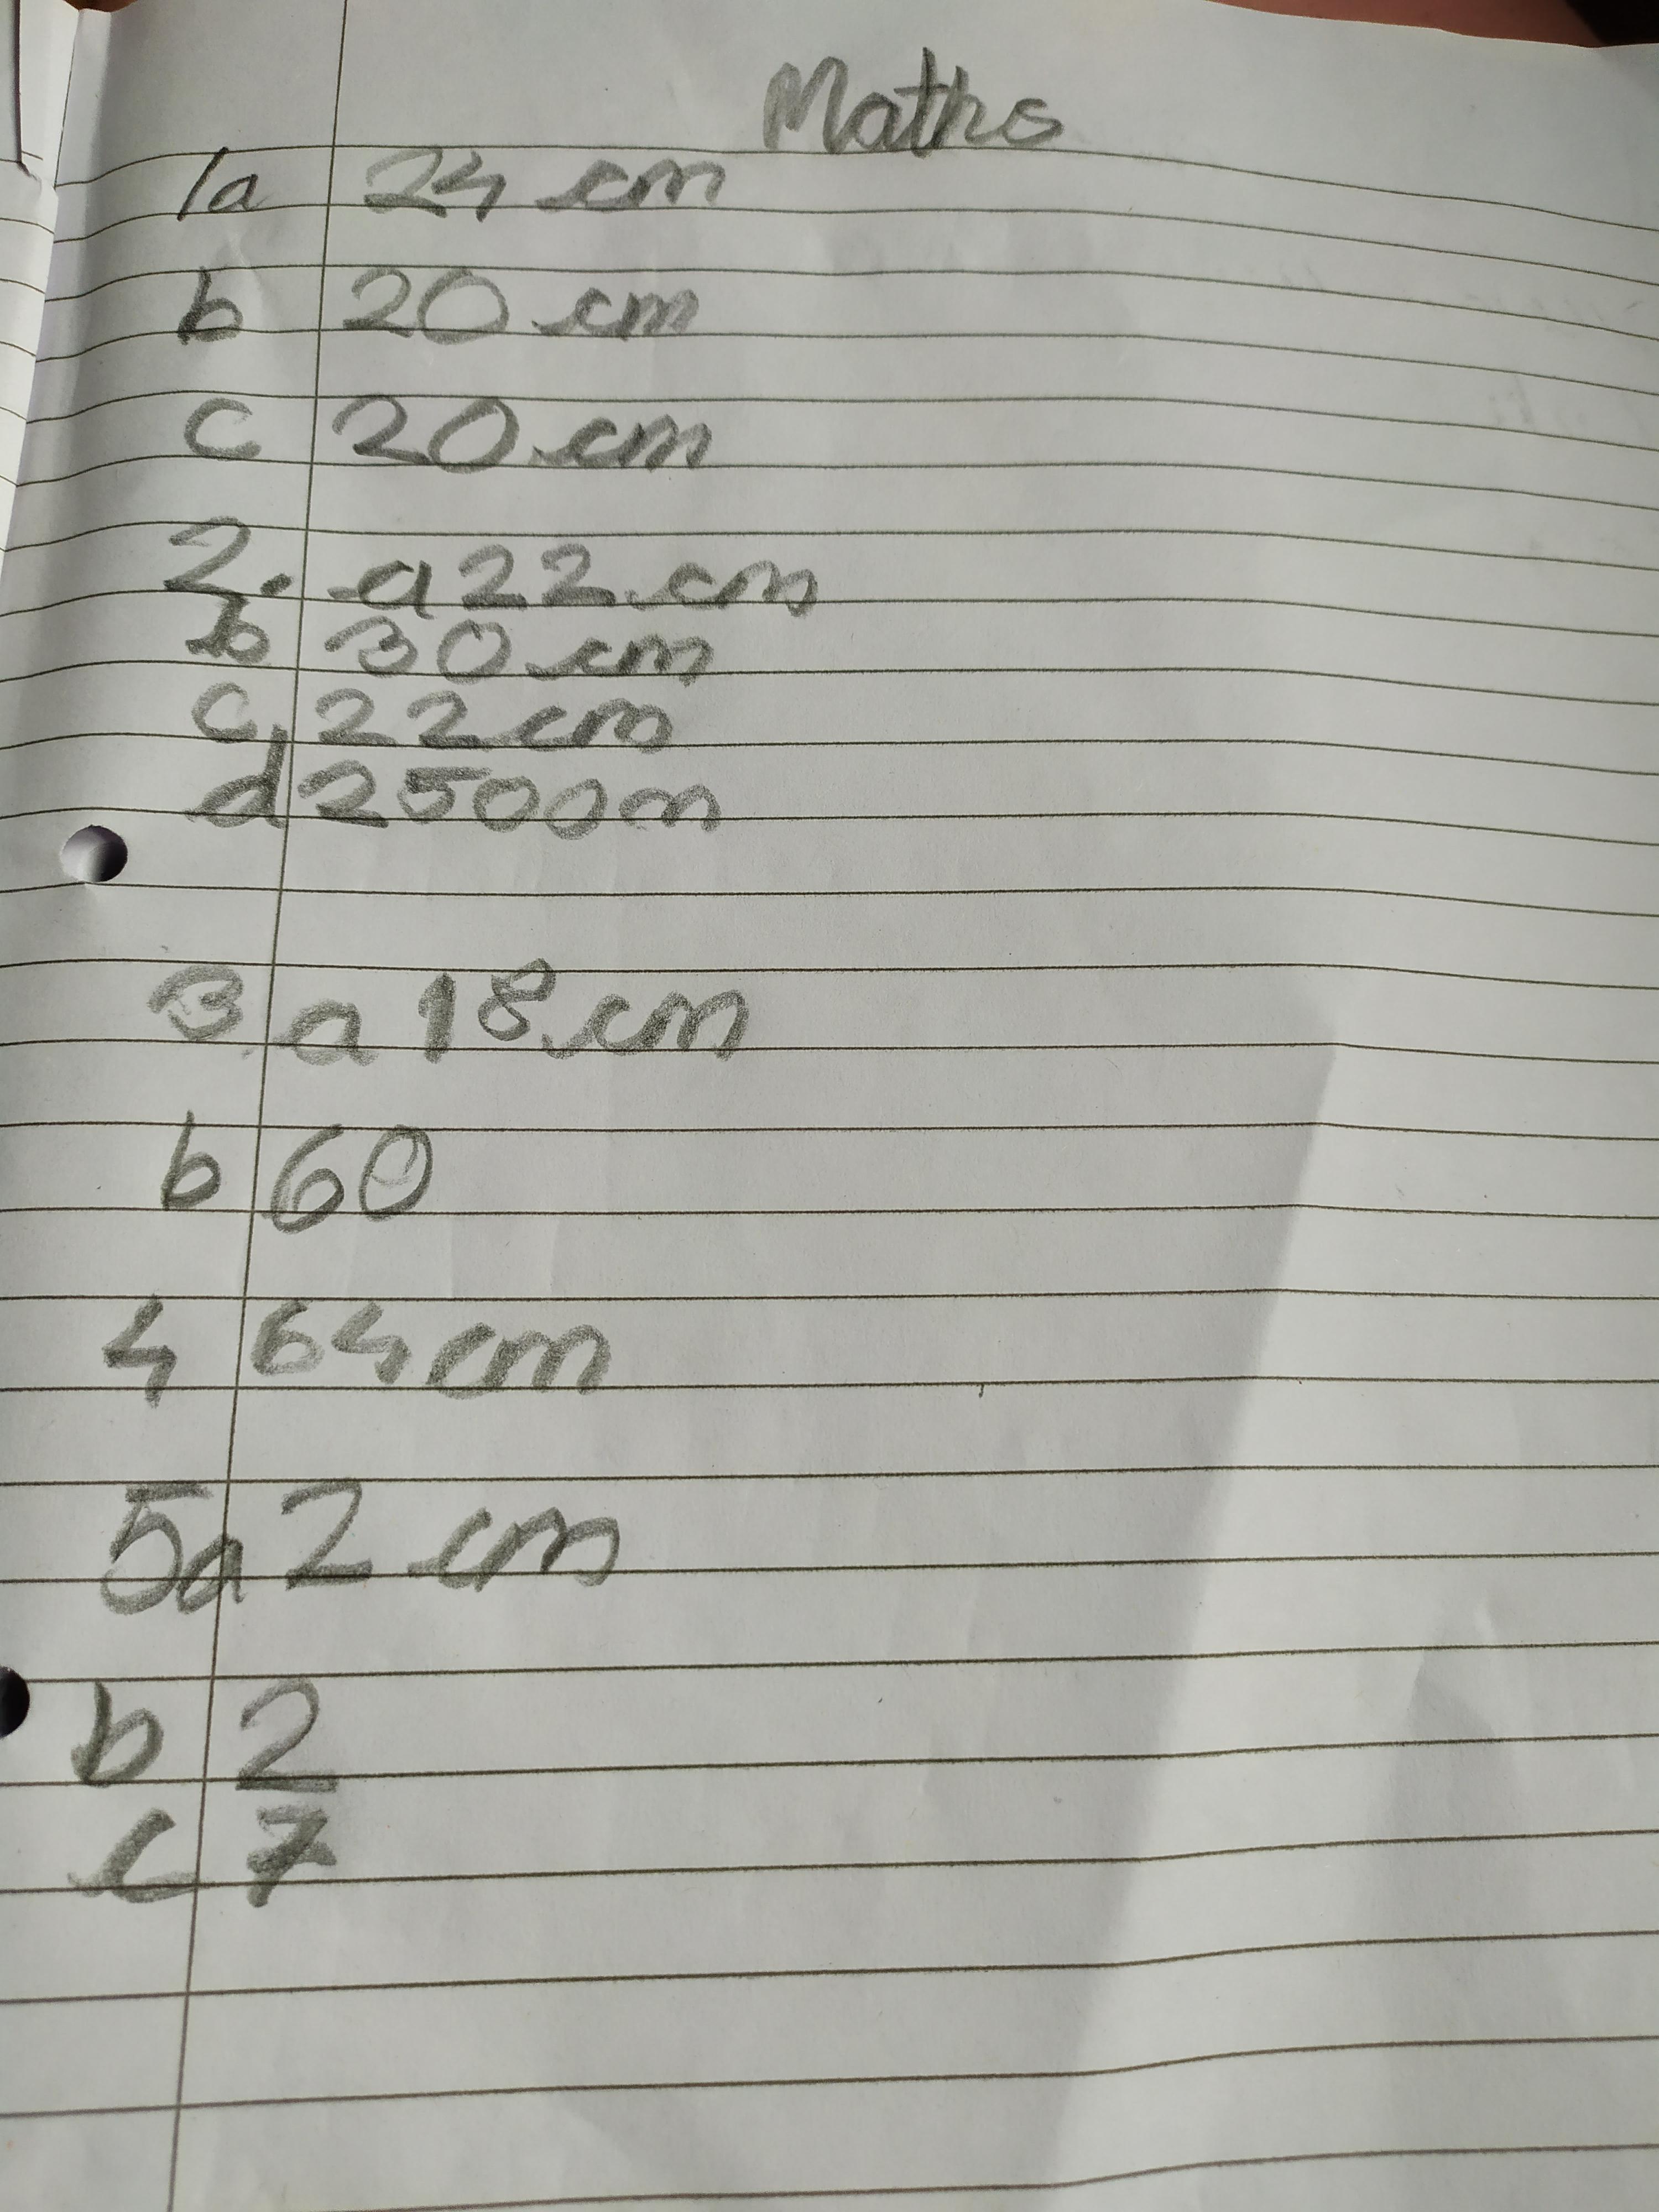 Maths
1a 24 cm
b 20 cm
c 20 cm
2. a 22 cm
b 30 cm
c 22 cm
d 2500m
3 a 18 cm
b 60
4 64 cm
5a 2 cm
b 2
c 7